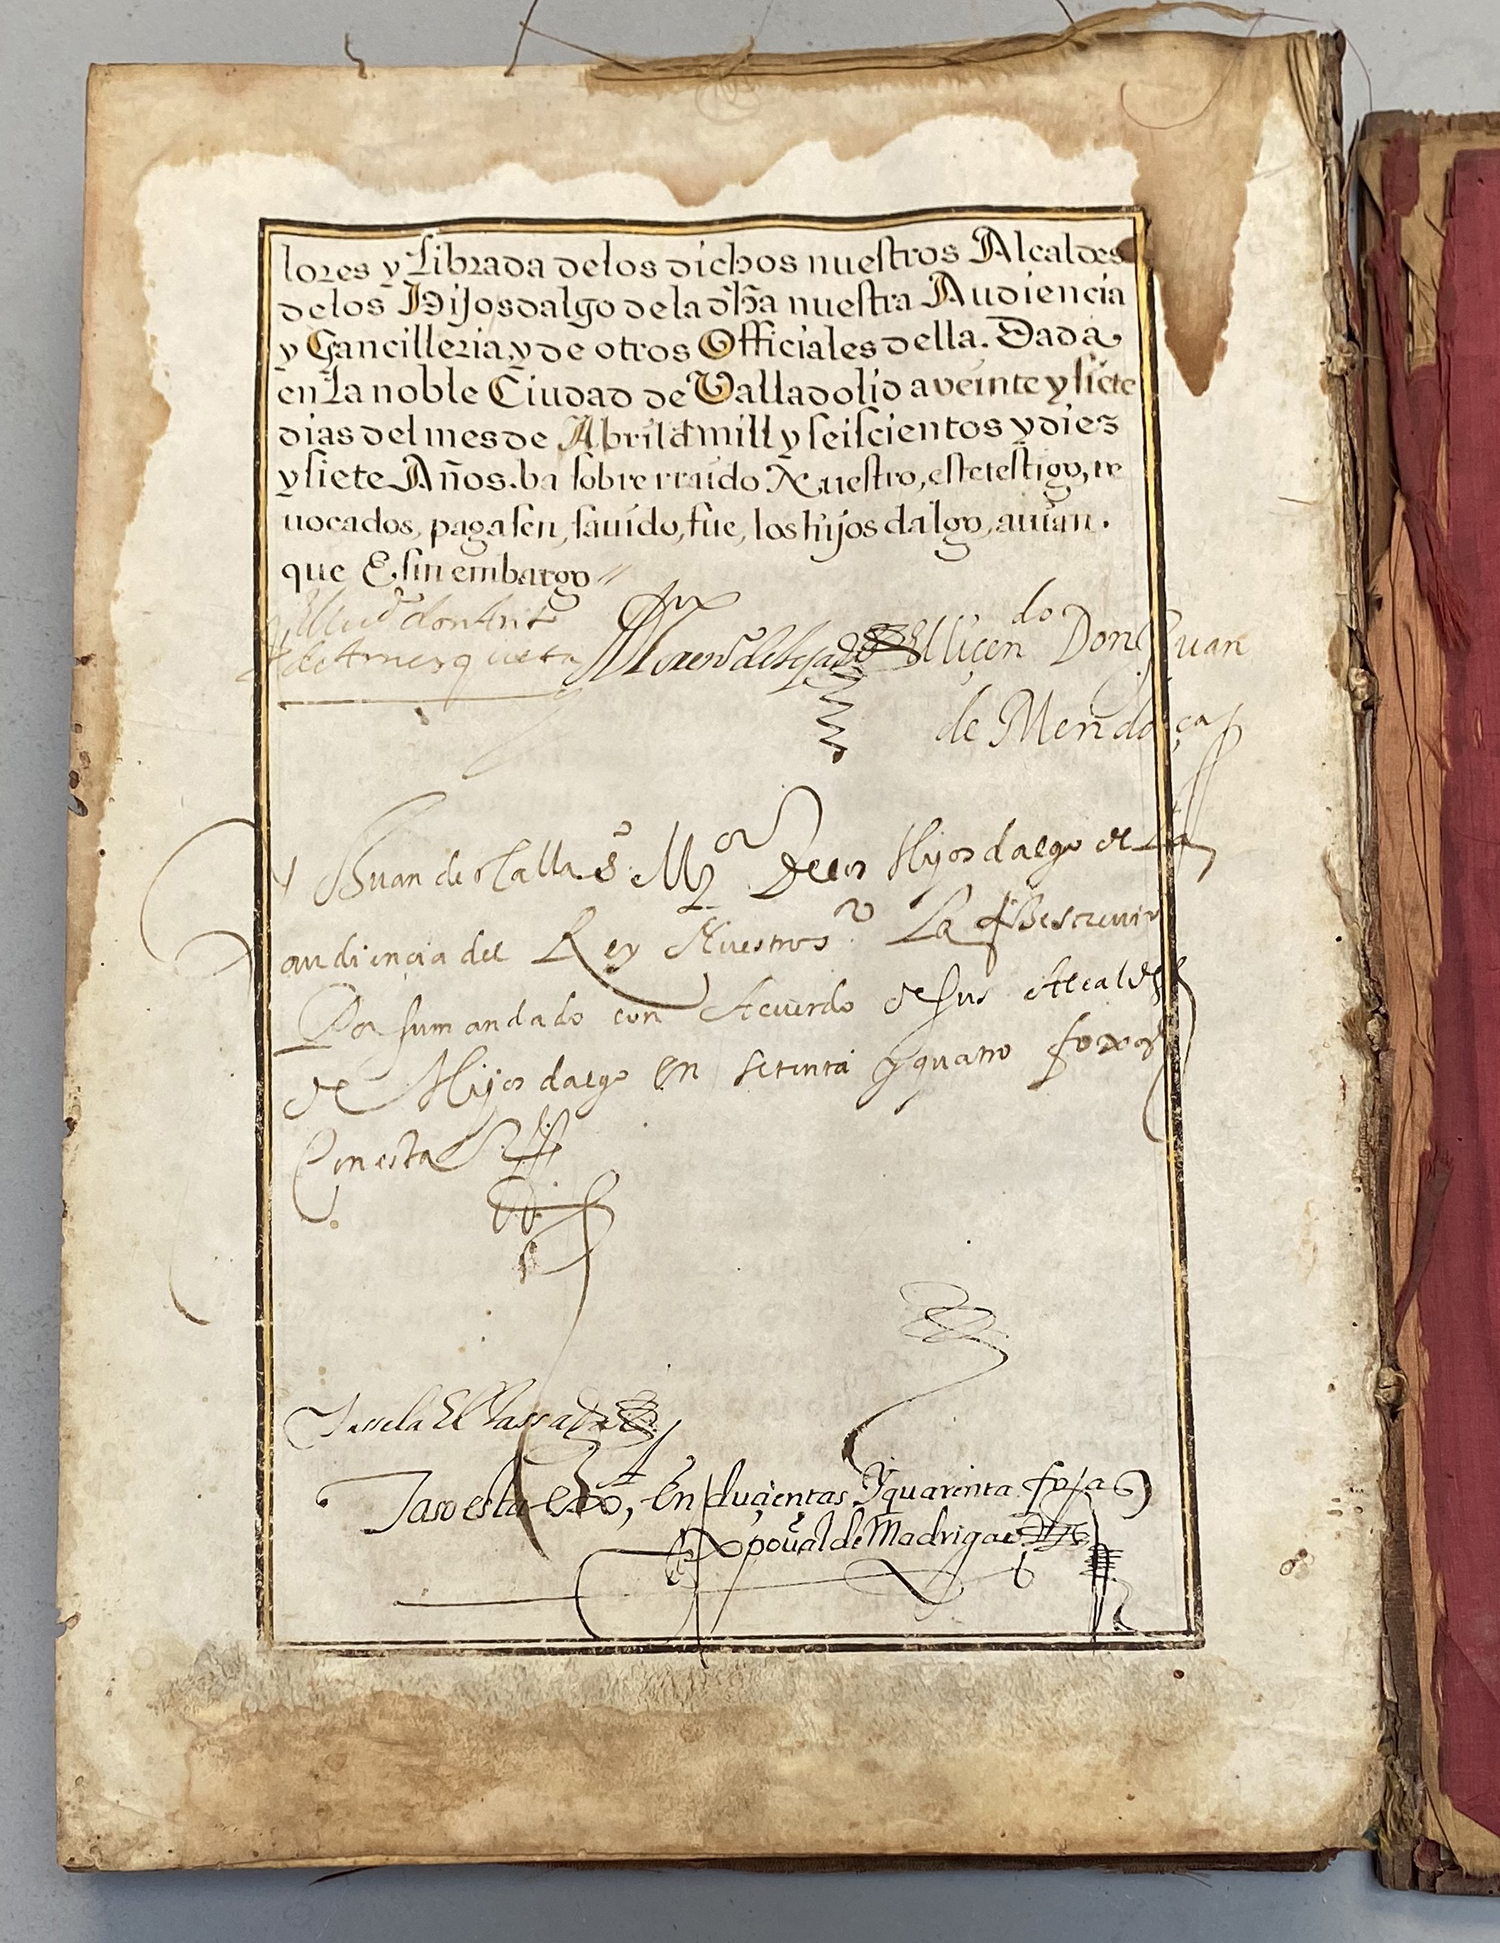 lores y librada delos dichos nuestros Alcaldes
delos Hijosdalgo dela dha nuestra Audiencia
y Chancilleria, y de otros Officiales della. Dada
en la noble Ciudad de Valladolid a veinte y siete
dias del mes de Abril d mill y seiscientos y diez
y siete Años. ba sobre rraido Nuestro, este testigo, re
uocados, pagasen, sauido, fue, los hijos dalgo, auian.
que E sin embargo
El licdo don Ant
de Amezqueta
El licendo Don Juan
de Mendoça
Juan de Mor Delos Hijosdalgo de la
audiençia del Rey Nuestro sr La fize screuir
Por su mandado con Acuerdo de sus Alcaldes
de Hijosdalgo en setenta y quatro foxas
Con esta
Tassela El Tassador
Taso esta exa, En duçientas y quarenta fojas
Xpoual de Madrigal